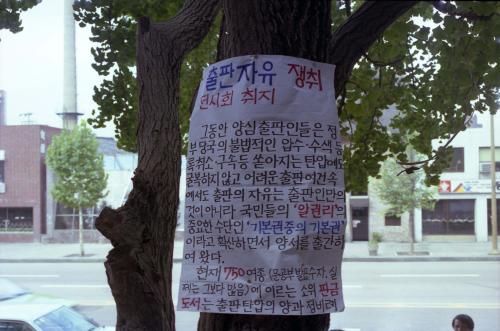 출판자유 쟁취
전시회 취지
그동안 양심 출판인들은 정
부당국의 불법적인 압수·수색, 등
록취소, 구속등 쏟아지는 탄압에도
굴복하지 않고 어려운 출판 여건속
에서도 출판의 자유는 출판인만의
것이 아니라 국민들의 '알권리'의
중요한 수단인 '기본권중의 기본권'
이라고 확신하면서 양서를 출간하
여 왔다.
현재 750여종 (문공부 발표수자, 실
제는 그보다 많음)에 이르는 소위 판금
도서는 출판 탄압의 양과 질에 비례